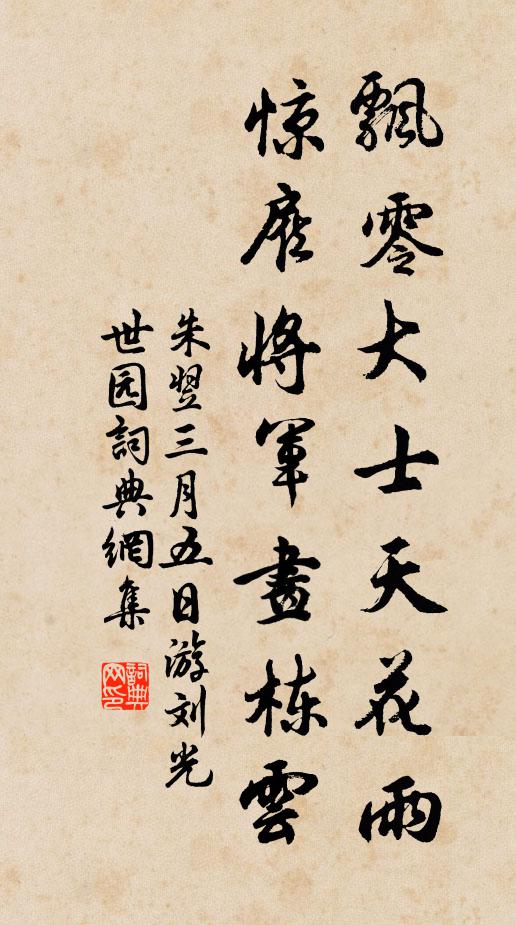 飄零大士天花雨
惊將軍畫栋雲
朱翌三月五日游刘光
世园詞典網集
詞典网印